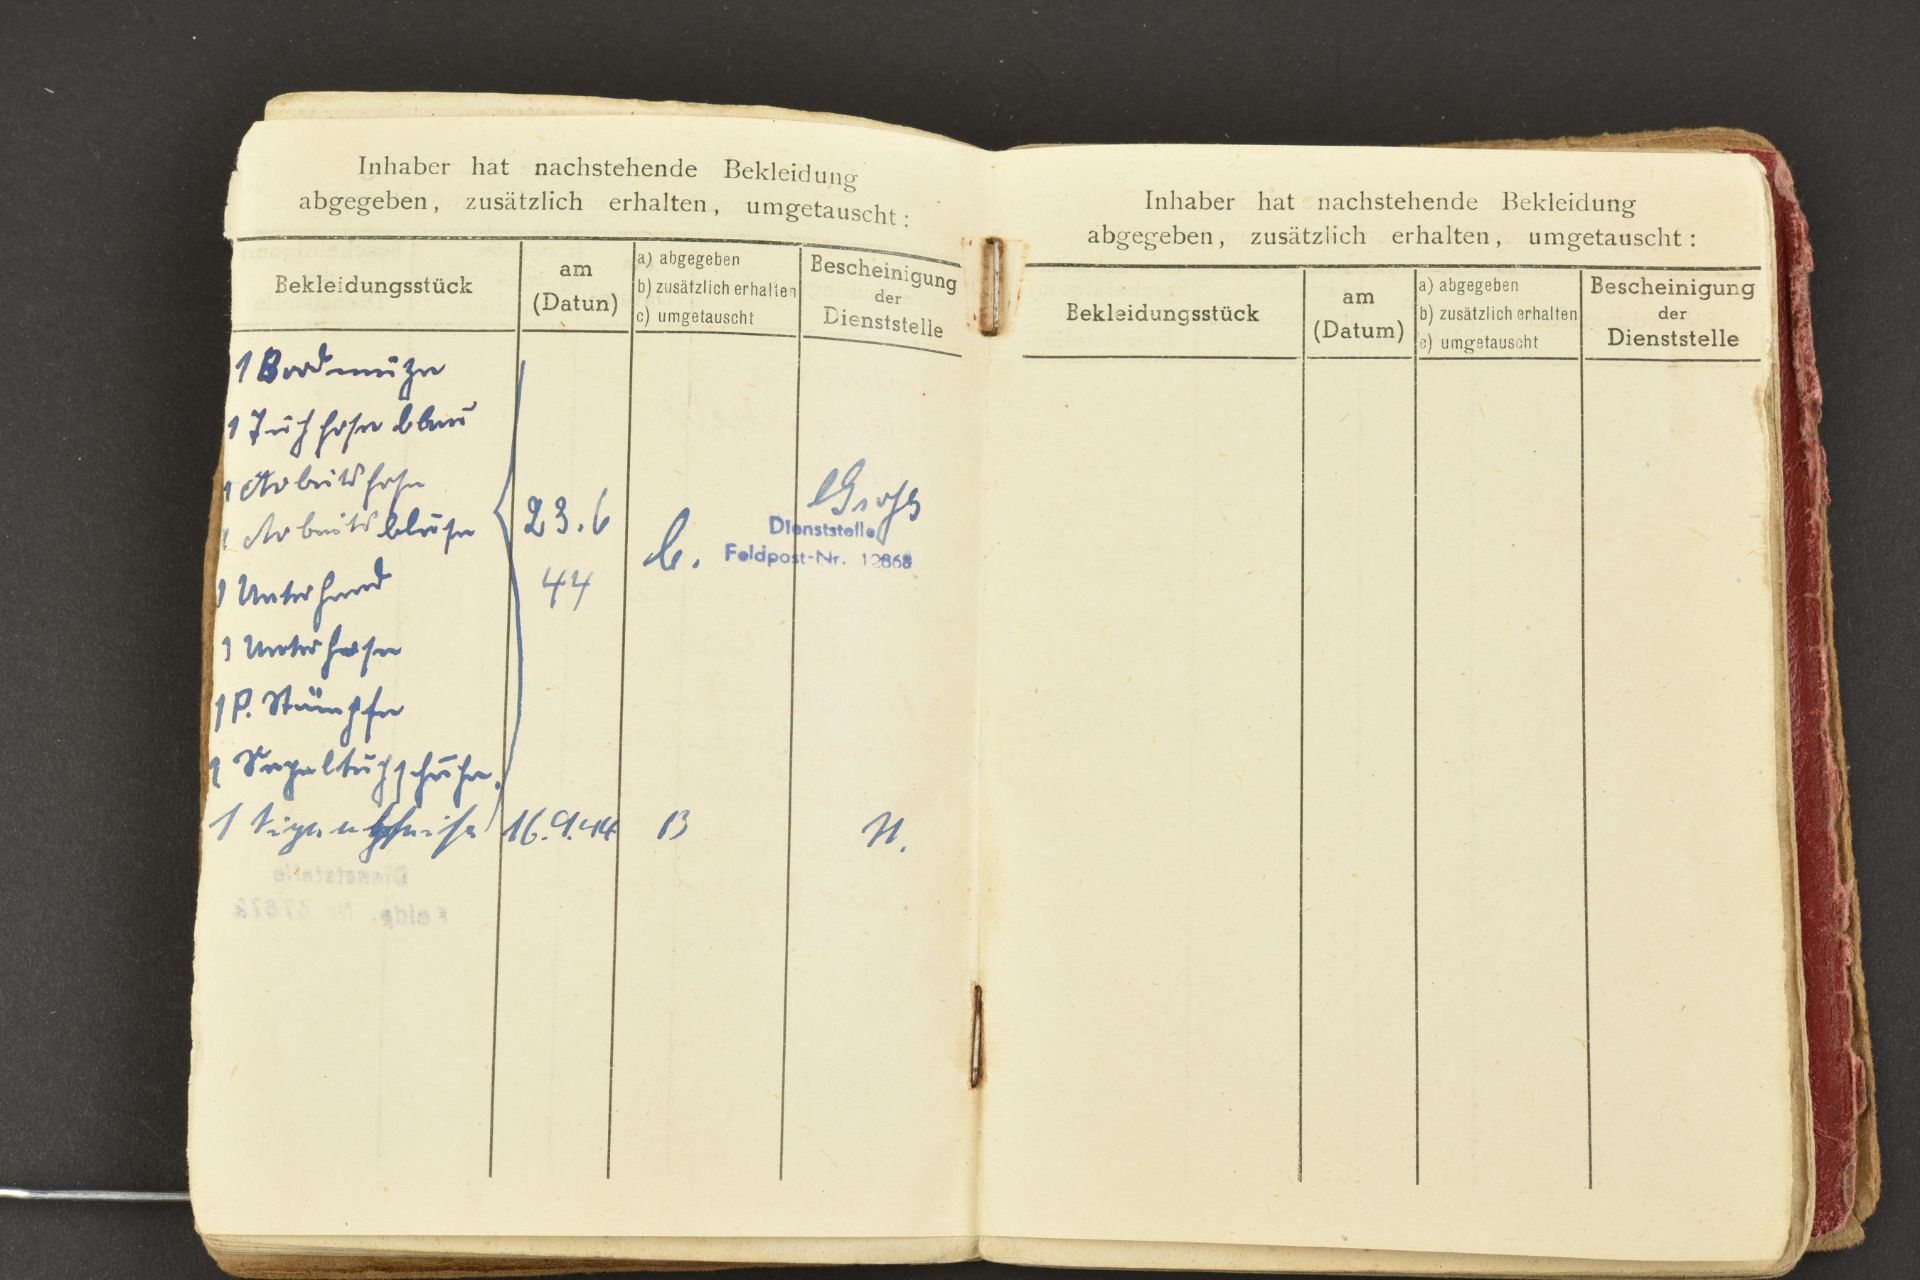 Inhaber hat nachstehende Bekleidung
abgegeben, zusätzlich erhalten, umgetauscht:
Bekleidungsstück
am
(Datun)
a) abgegeben
b) zusätzlich erhalten
c) umgetauscht
Bescheinigung
der
Dienststelle
1 Bordmütze
1 Tuchhose blau
1 Arbeitshose
1 Arbeitsbluse
1 Unterhemd
1 Unterhose
1 P. Strümpfe
1 Segeltuchschuhe.
23.6
44
b.
Dienststelle
Feldpost-Nr. 12868
1
16.9.44
B
Inhaber hat nachstehende Bekleidung
abgegeben, zusätzlich erhalten, umgetauscht:
Bekleidungsstück
am
(Datum)
a) abgegeben
b) zusätzlich erhalten
c) umgetauscht
Bescheinigung
der
Dienststelle